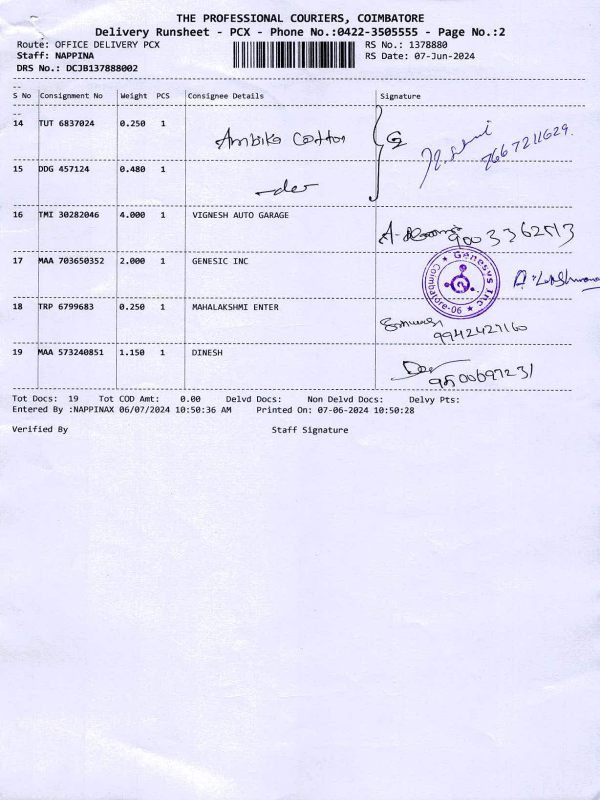 THE PROFESSIONAL COURIERS, COIMBATORE
Delivery Runsheet - PCX - Phone No.:0422-3505555 - Page No.:2
Route: OFFICE DELIVERY PCX RS No.: 1378880
Staff: NAPPINA RS Date: 07-Jun-2024
DRS No.: DCJB137888002
S No Consignment No Weight PCS Consignee Details Signature
14 TUT 6837024 0.250 1 Ambika Cotton
7667211629
15 DDG 457124 0.480 1
16 TMI 30282046 4.000 1 VIGNESH AUTO GARAGE
17 MAA 703650352 2.000 1 GENESIC INC
Genesys Inc
Coimbatore-06
18 TRP 6799683 0.250 1 MAHALAKSHMI ENTER
9942427160
19 MAA 573240851 1.150 1 DINESH
Tot Docs: 19 Tot COD Amt: 0.00 Delvd Docs: Non Delvd Docs: Delvy Pts:
Entered By :NAPPINAX 06/07/2024 10:50:36 AM Printed On: 07-06-2024 10:50:28
Verified By Staff Signature